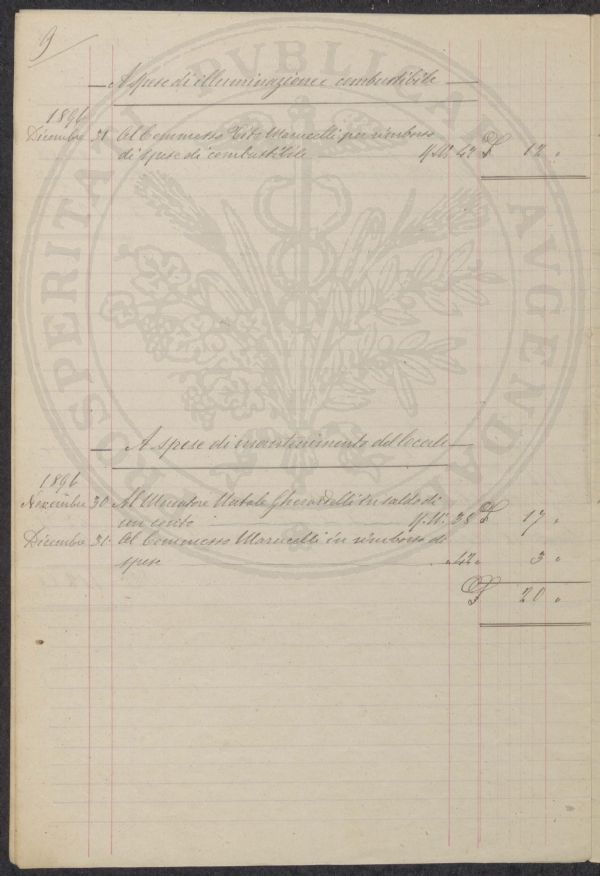 9
A spese di illuminazione e combustibile
1896
Dicembre 31 Al Commesso Marucelli per rimborso
di spese di combustibile M. N. 42 £ 12 "
A spese di mantenimento del locale
1896
Novembre 30 Al Muratore Natale Gherardelli in saldo di
un conto M. N. 38 £ 17 "
Dicembre 31 Al Commesso Marucelli in rimborso di
spese " 42 " 3 "
£ 20 "
PROSPERITATI PVBLICAE AVGENDAE